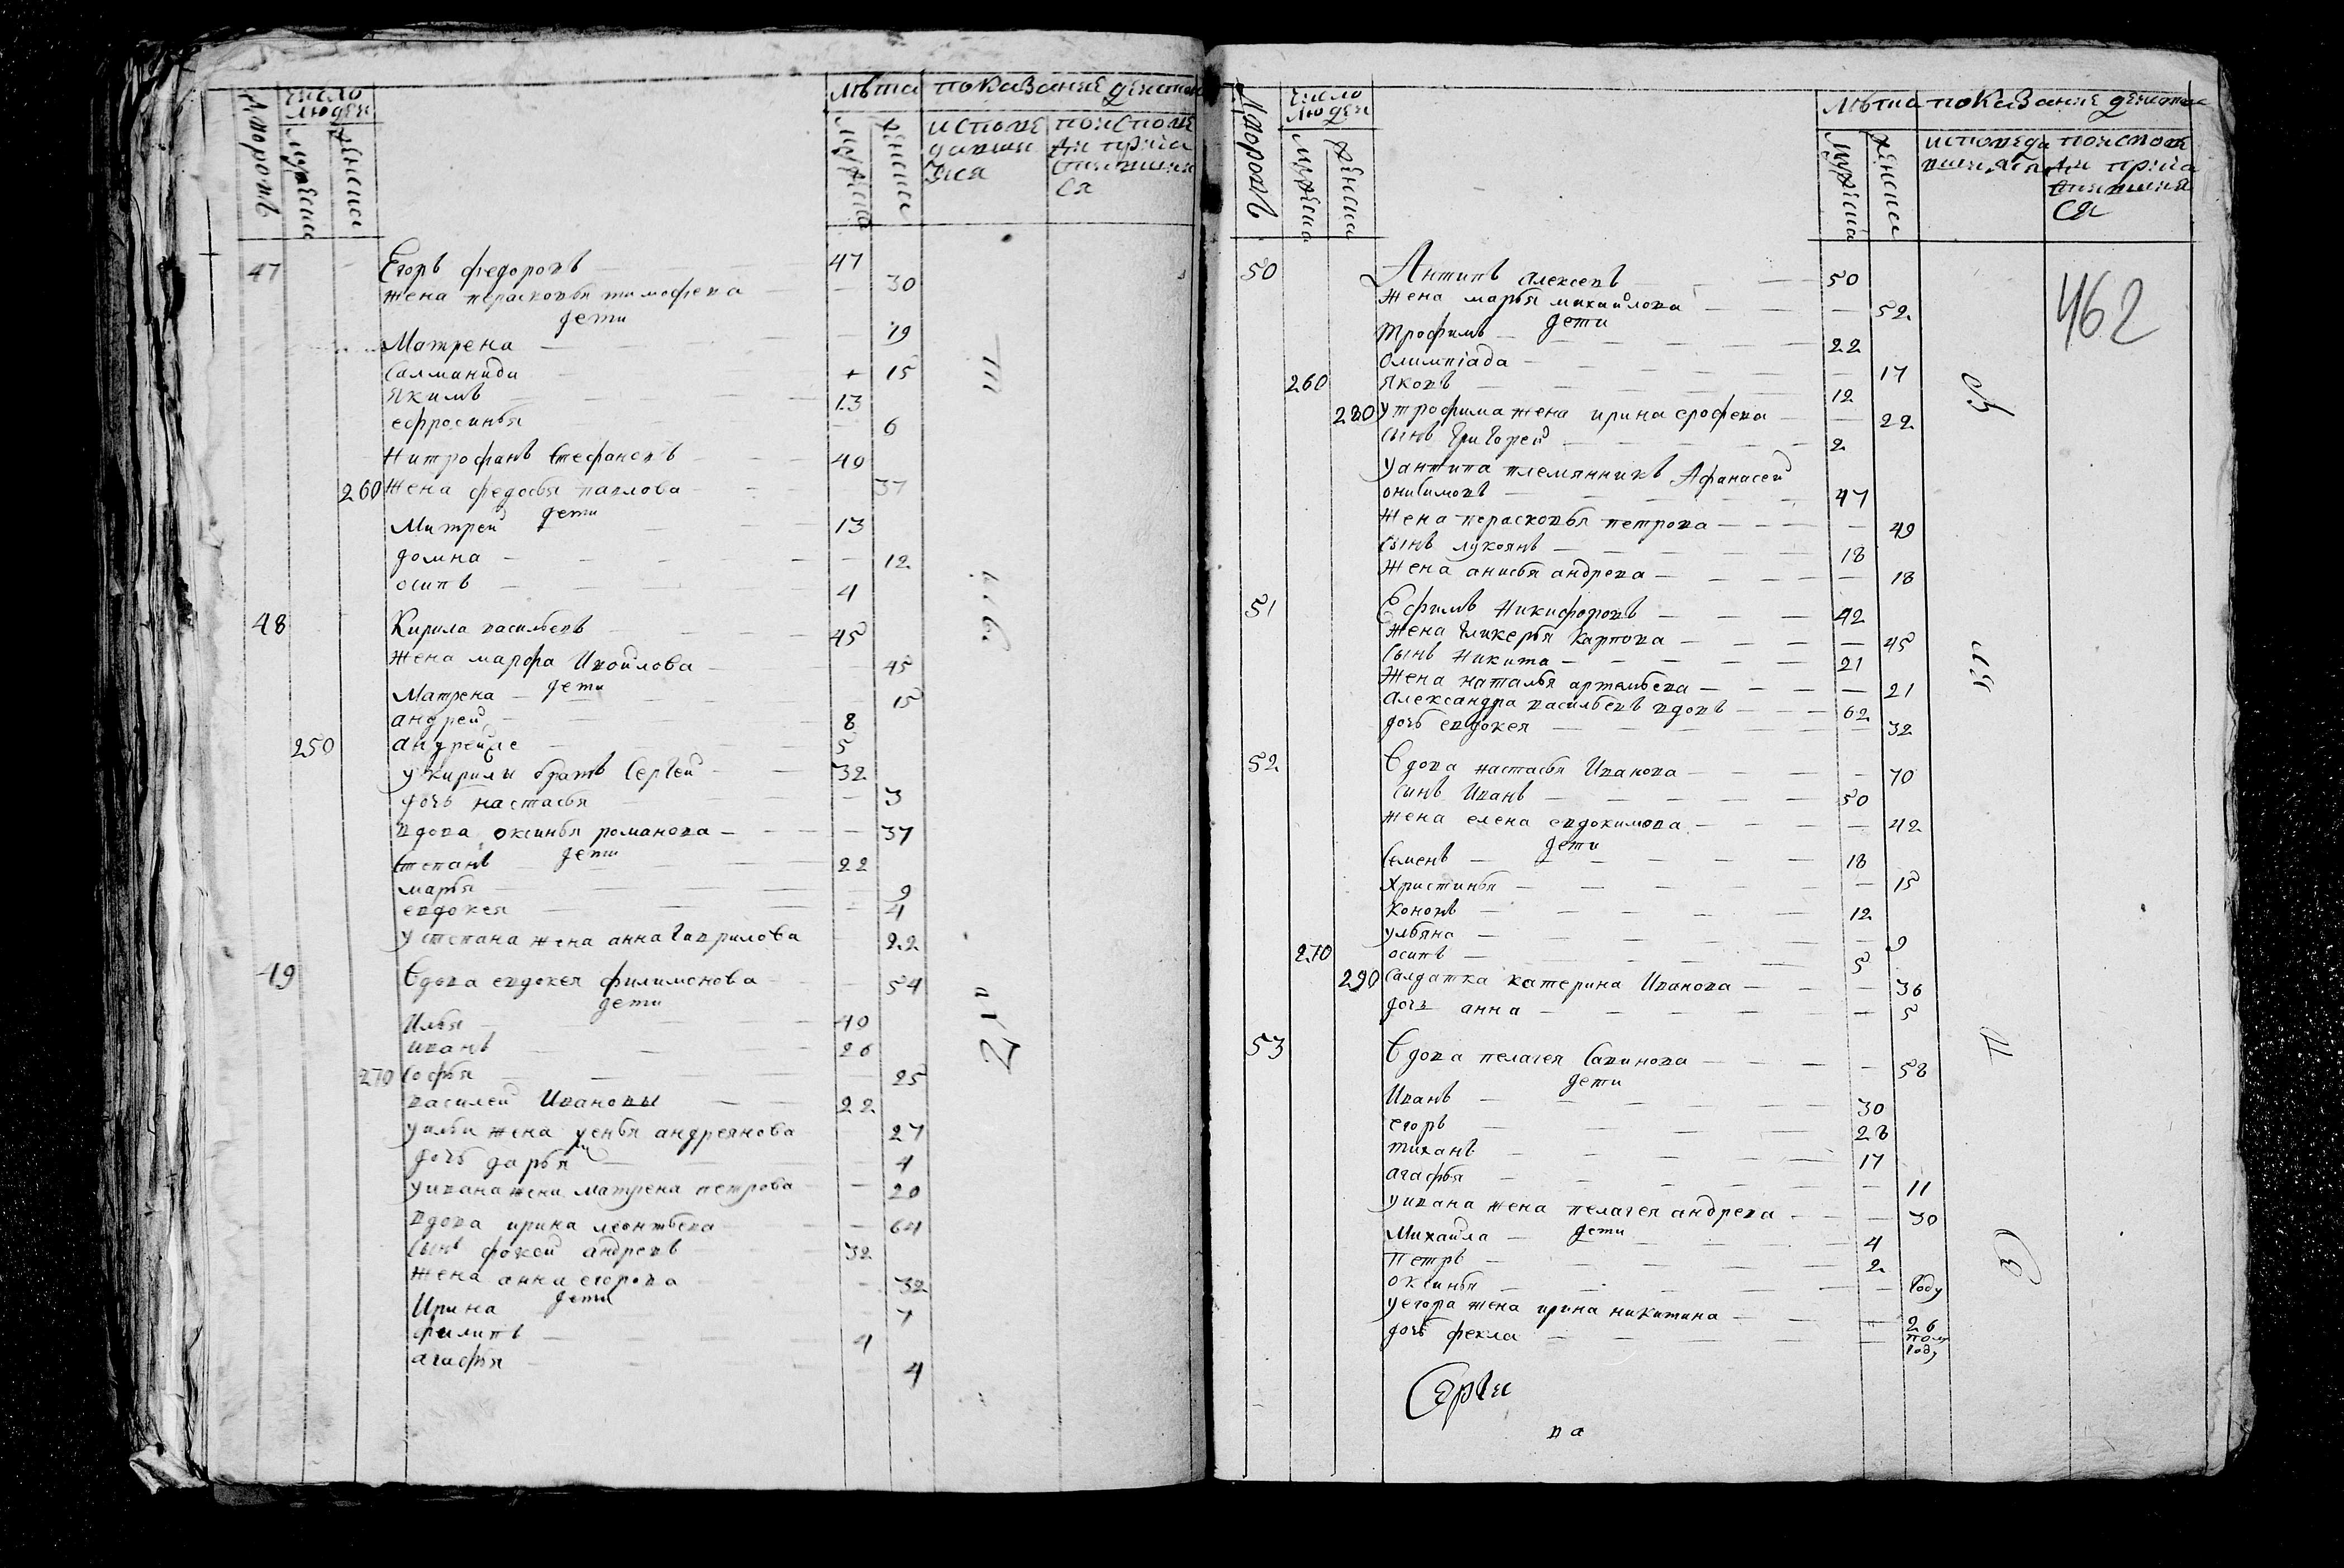 дворовъ
число людей
мужеска
женска
лѣта
мужеска
женска
показание действ
исповедавшиися
по исповеди причастившияся
47 Егоръ федоровъ 47
жена парасковья тимофеева 30
дети
Матрена 19
Салманида + 15
Якимъ 13
ефросинья 6
Митрофанъ Стефановъ 40
260 жена федосья павлова 37
дети
Митрей 13
домна 12
осипъ 4
48 Кирила васильевъ 45
жена марфа Ивойлова 45
дети
Матрена 15
андрей 8
250 андрей же 5
у кирилы братъ Сергей 32
дочь настасья 3
вдова оксинья романова 37
дети
Степанъ 22
марья 9
евдокея 4
у степана жена анна гаврилова 22
49 Вдова евдокея филимонова 54
дети
Илья 40
иванъ 26
270 Софья 25
василей Ивановы 22
у ильи жена ксенья андреянова 27
дочь дарья 4
у ивана жена матрена петрова 20
вдова ирина леонтьева 64
Сынъ фокей андревъ 32
жена анна егорова 32
дети
Ирина 7
филипъ 4
агафья 4
дворовъ
число людей
мужеска
женска
лѣта
мужеска
женска
показание действ
исповедавшияся
по исповеди причастившияся
462
50 Антипъ алексевъ 50
жена марья михайлова 52
дети
Трофимъ 22
Олимпіада 17
260 яковъ 12
280 у трофима жена ирина ерофева 22
сынъ Григорей 2
у антипа племянникъ Афанасей
онисимовъ 47
жена парасковья петрова 49
сынъ лукоянъ 18
жена анисья андрева 18
51 Ефимъ Никифоровъ 42
жена гликерья карпова 45
сынъ никита 21
жена наталья артемьева 21
александра васильевъ вдовъ 62
дочь евдокея 32
52 Вдова настасья Иванова 70
сынъ Иванъ 50
жена елена евдокимова 42
дети
Семенъ 18
христинья 15
кононъ 12
ульяна 9
270 осипъ 5
290 салдатка катерина Иванова 36
дочь анна 5
53 Вдова пелагея Савинова 58
дети
Иванъ 30
егоръ 28
тиханъ 17
агафья 11
у ивана жена пелагея андрева 30
дети
Михайла 4
Петръ 2
оксинья году
у егора жена ирина никитина 26
дочь фекла полу году
Серги
ва